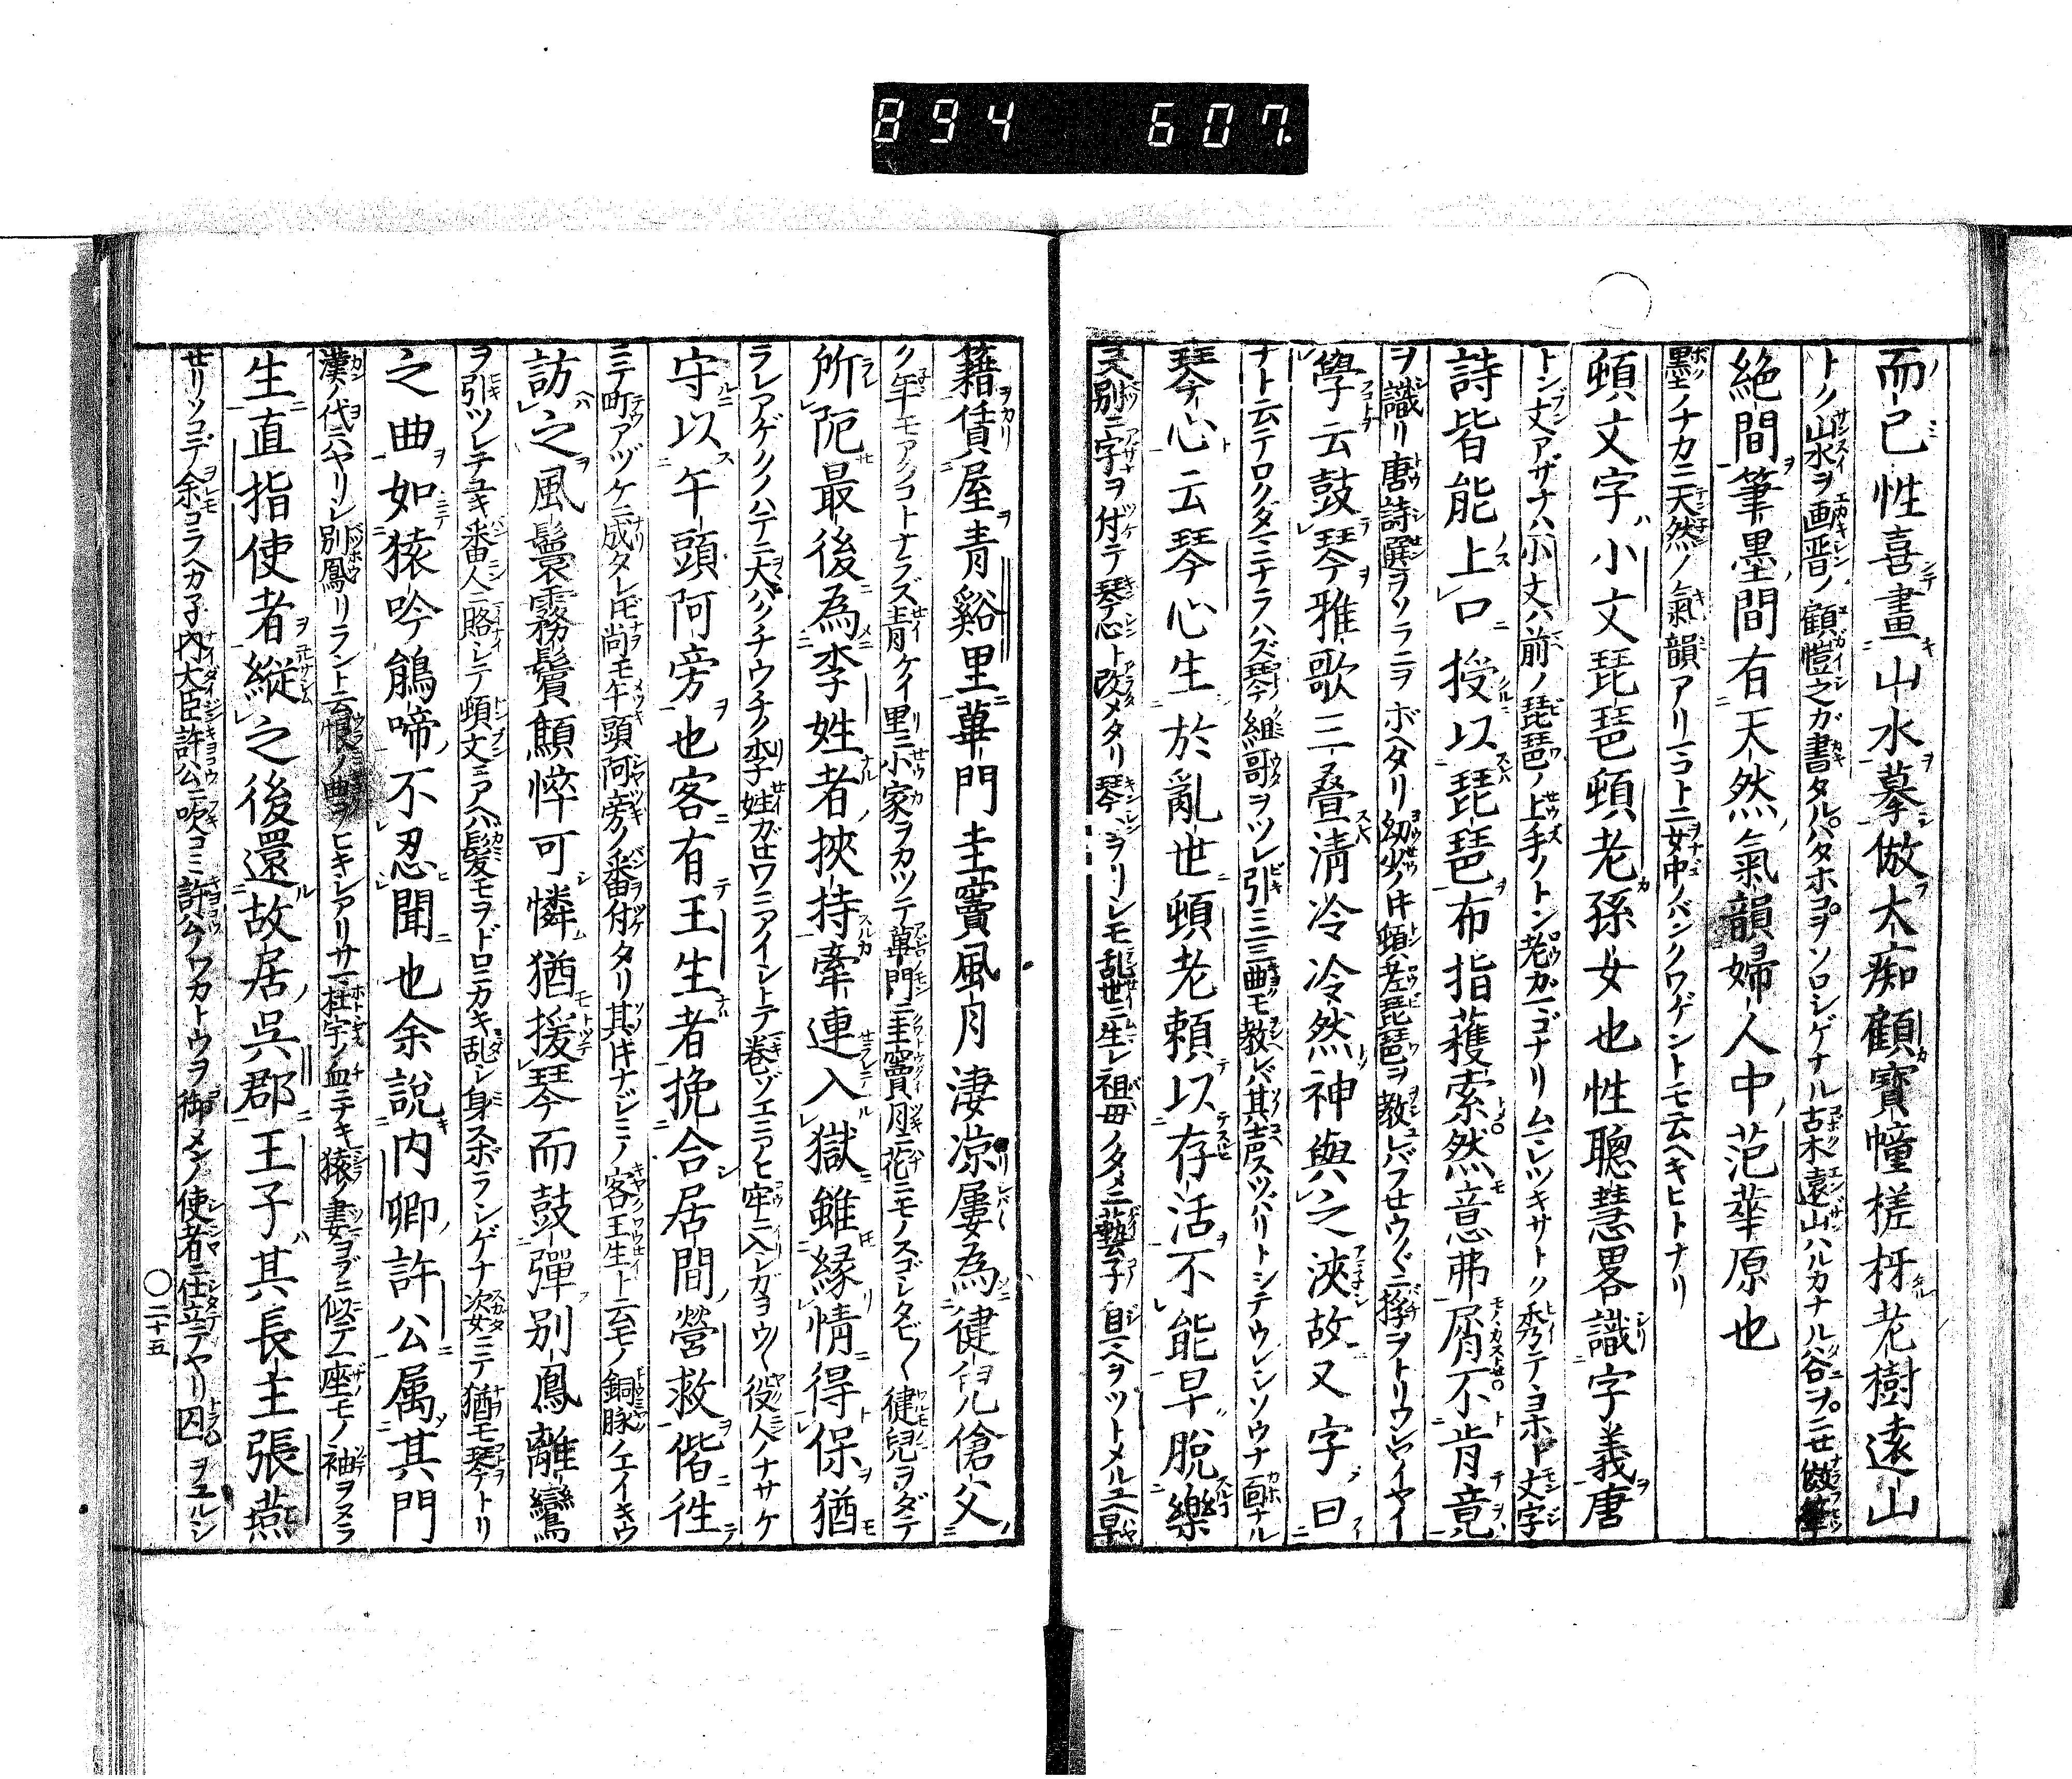 894 607
而已性喜畫山水摹倣太痴顧寶幢槎枒老樹遠山
トノ山水ヲ画晋ノ顧愷之ガ書タルハタホコヲソロシゲナル古木遠山ハルカナル谷ヲニせ倣筆
絶間筆墨間有天然氣韻婦人中范華原也
墨ノチカニ天然ノ氣韻アリマコトニ女中ノバンクワゲントモ云ヘキヒトナリ
頓文字小文琵琶頓老孫女也性聰慧畧識字義唐
トン文アザナハ小文ハ前ノ琵琶ノ上手ノトン老カマゴナリムマレツキサトク秀テヨホド文字
詩皆能上口授以琵琶布指䕶索然意弗屑不肯竟
ヲ識リ唐詩選ヲソラニヲボヘタリ幼少ノ時頓老琵琶ヲ教レバフせウ〴〵ニ撥ヲトリウレイヤイ
學云鼓琴雅歌三疊清冷冷然神與之浹故又字曰
ナト云テロクダマニナラハズ琴ノ組哥ヲツレ引ニ三曲モ教レバ其声スツハリトシテウレシソウナ面ナル
琴心云琴心生於亂世頓老頼以存活不能早脱樂
又別ニ字ヲ付テ琴心ト改メタリ琴心ヲリレモ乱世ニ生レ祖母ノタメニ藝子自マヘヲツトメルユヘ早
籍賃屋青谿里蓽門圭竇風月淒凉屢為健兒傖父
ク年モアクコトナラズ青ケイ里ニ小家ヲカツテ蓽門ニ圭竇月ニ花ニモノスゴレタビ〳〵健兒ヲダテ
所阨最後為李姓者挾持牽連入獄雖緣情得保猶
ラレアゲクノハテニ大ハクチウチノ李姓ガせワニアイシトテ巻ゾエニアヒ牢ニ入シガヨウ〳〵役人ノナサケ
守以午頭阿旁也客有王生者挽合居間營救偕徃
ニテ町アヅケニ成タレ𪜈尚モ午頭阿旁ノ番付タリ其𪜈ナジミノ客王生ト云モノ銅脉ノエイキウ
訪之風鬟霧鬢顦悴可憐猶援琴而鼓彈別鳳離鸞
ヲ引ツレテユキ番人ニ賂シテ頓文ニアヘハ髪モヲドロニカキ乱シ身スボラシゲナ姿ニテ猶モ琴トリ
之曲如猿吟鵑啼不忍聞也余說内卿許公属其門
漢ノ代ニハヤリシ別鳳リラント云恨ノ曲ヲヒキレアリサマ杜宇ノ血ニナキ猿ノ妻ヨブニ似テ一座モノ袖ヲヌラ
生直指使者縱之後還故居呉郡王子其長主張燕
せリソコデ余コラヘカ子内大臣許公ニ吹コミ許公ノワカトウヲ御メシノ使者ニ仕立テヤリ囚ヲユルシ
〇二十五